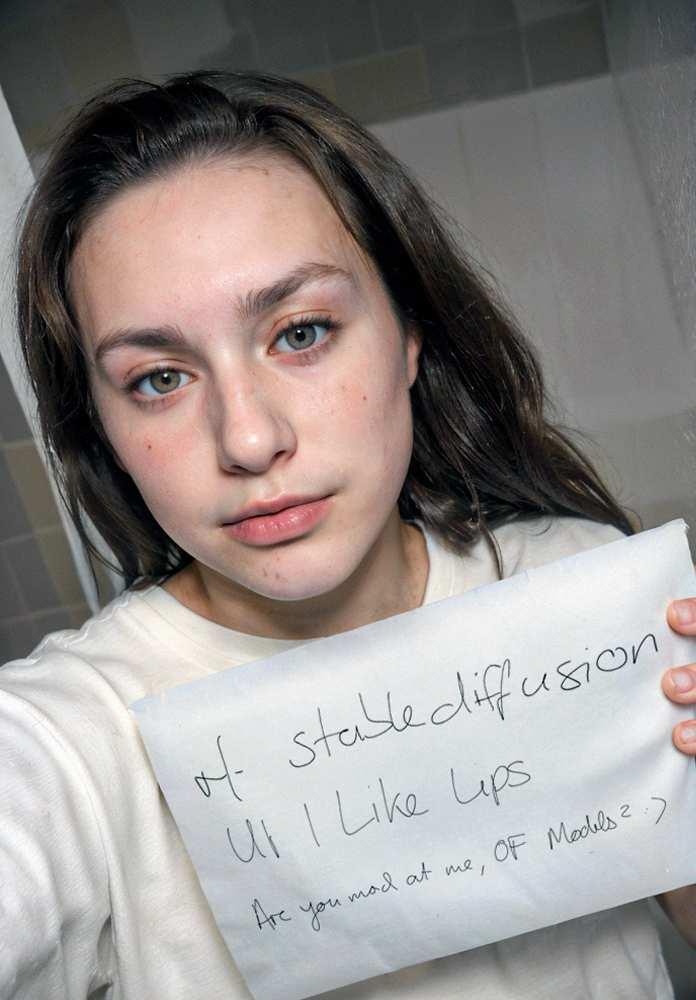 r/- stablediffusion
U/ I Like Lips
Are you mad at me, OF Models? :)